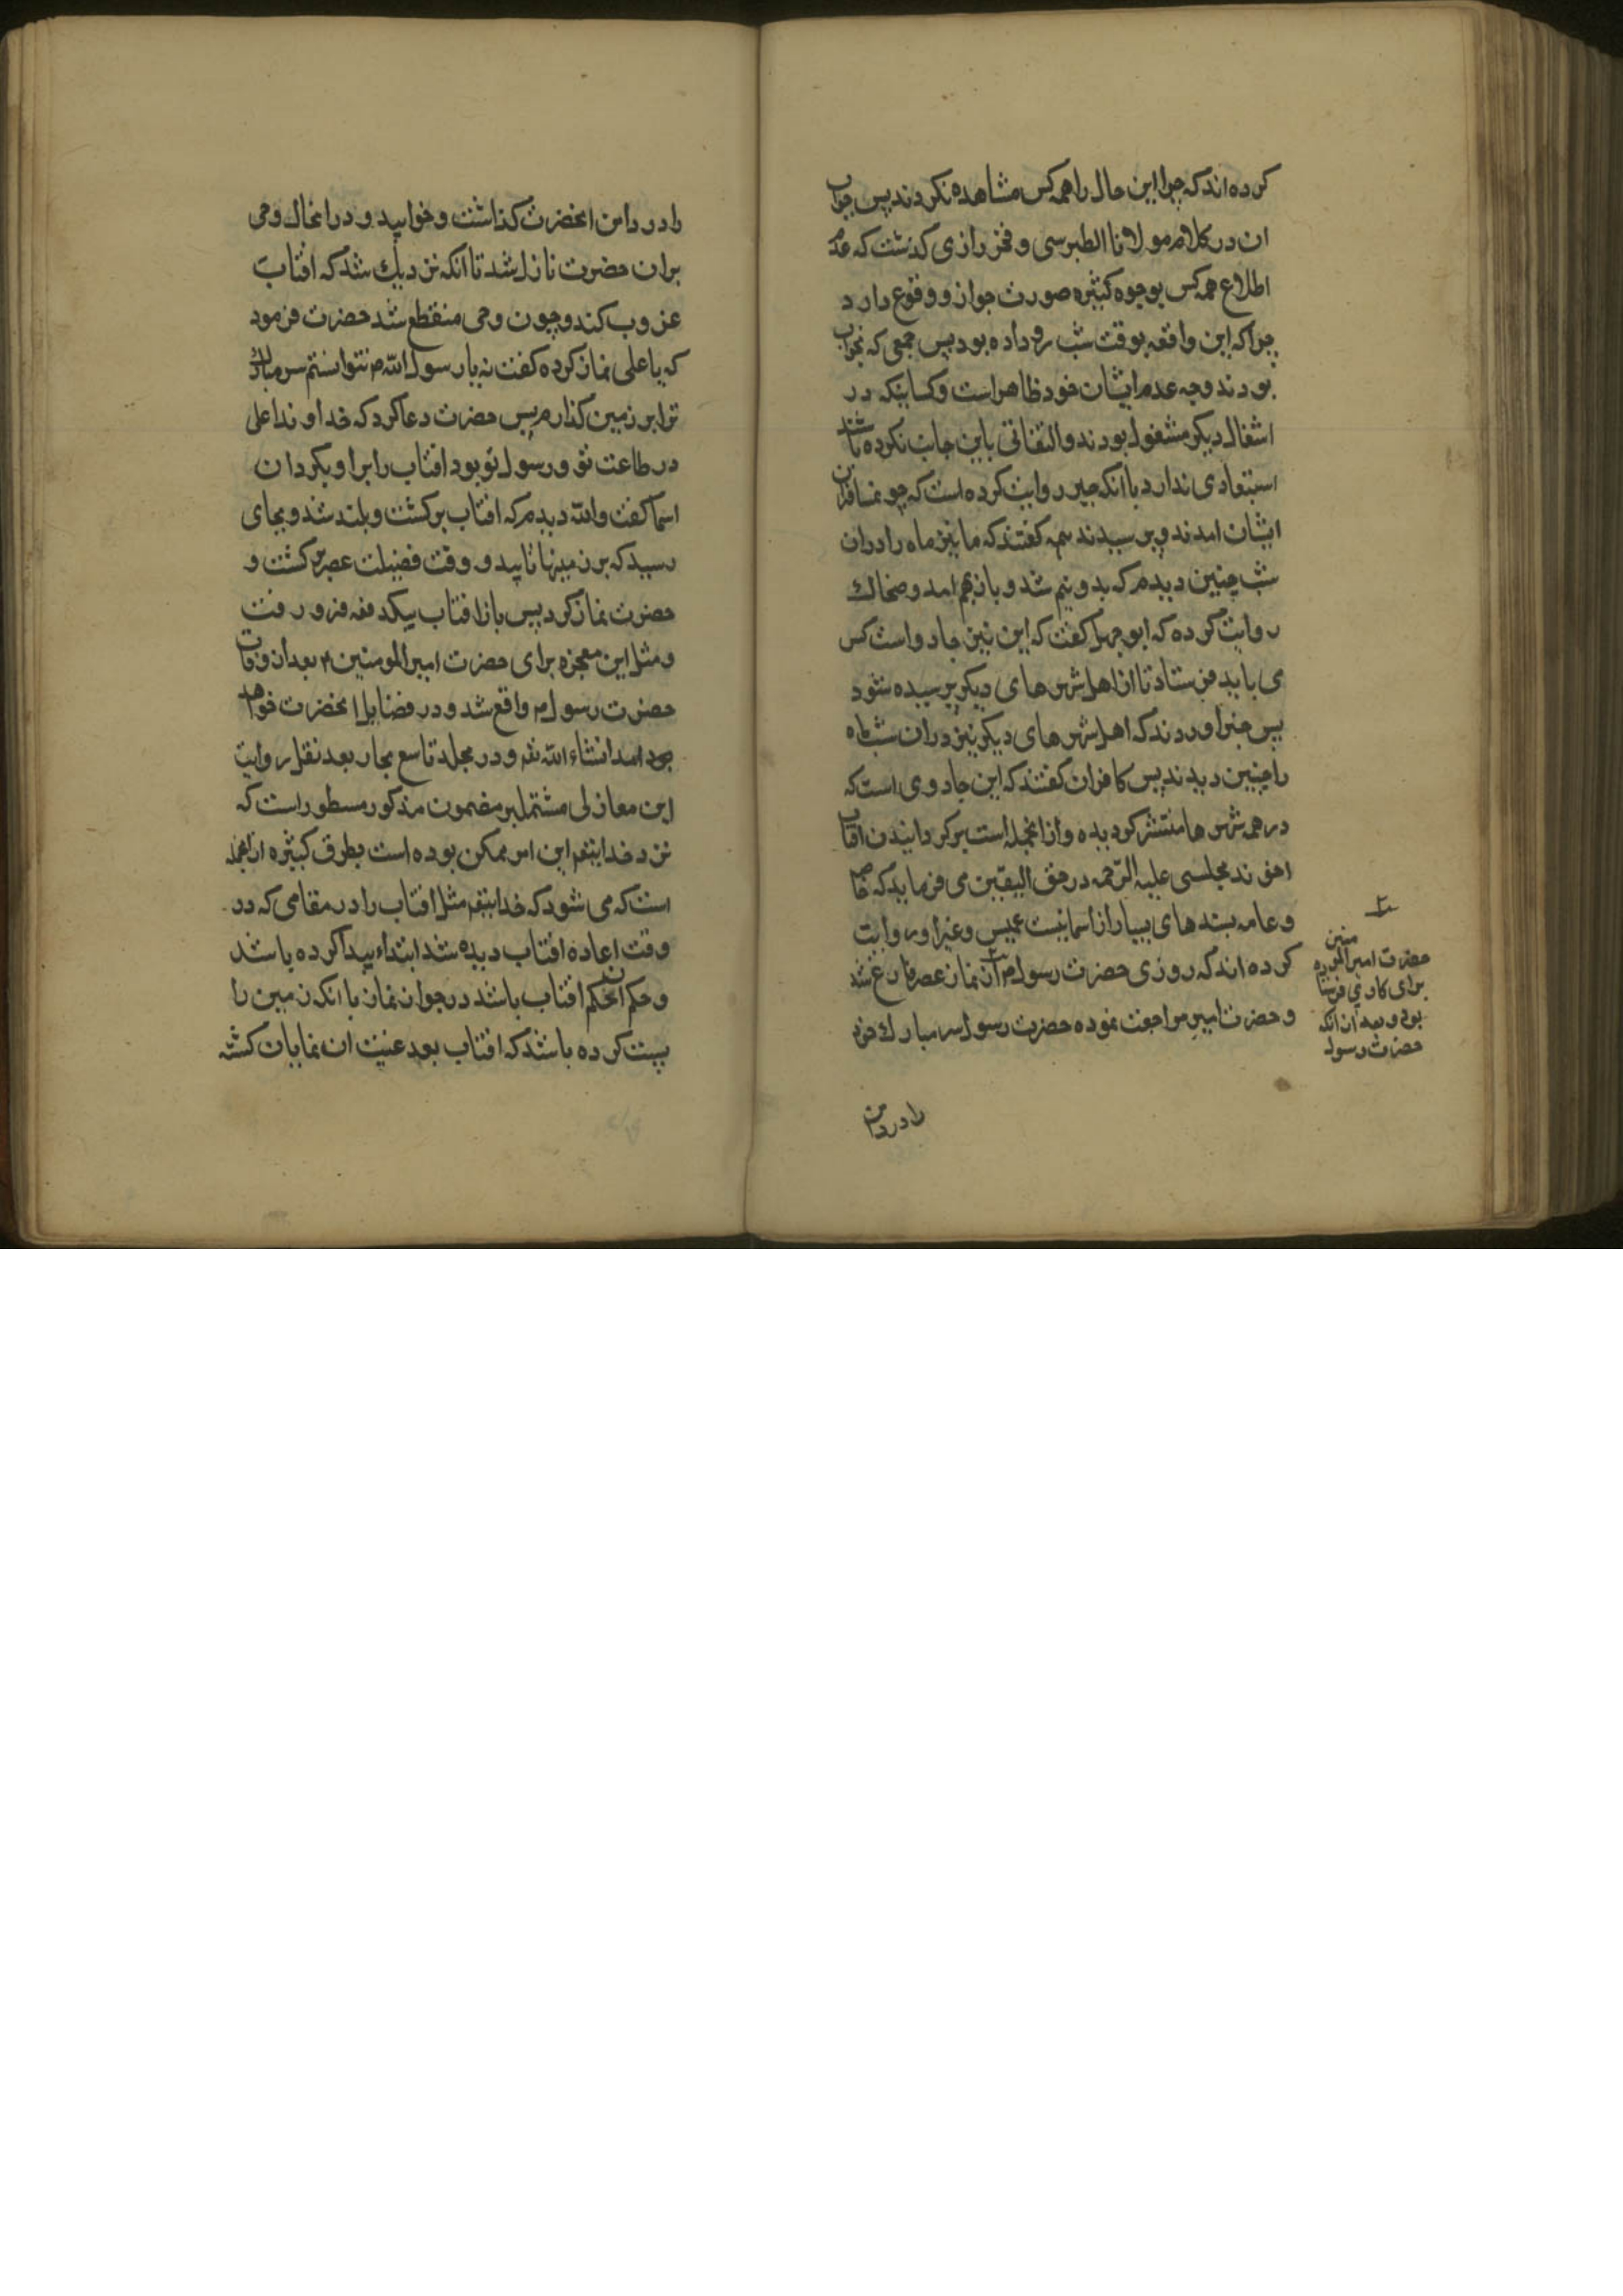 کرده اند که چرا این حال را همه کس مشاهده نکردند پس جواب
ان در کلام مولانا الطبرسی و فخر رازی کذشت که عدم
اطلاع همه کس بوجوه کثیره صورت جواز و وقوع دارد
چرا که این واقعه بوقت شب رو داده بود پس جمعی که بخواب
بودند وجه عدم ایشان خود ظاهر است و کسانیکه در
اشغال دیکر مشغول بودند و التفاتی باین جانب نکرده باشند
استبعادی ندارد با انکه جبیر روایت کرده است که چو مسافران
ایشان امدند و پرسیدند همه کفتند که ما نیز ماه را دران
شب چنین دیدیم که بدو نیم شد و باز بهم امد و ضحاک
روایت کرده که ابو جهل کفت که این نیز جادو است کس
می باید فرستاد تا از اهل شهرهای دیکر پرسیده شود
پس خبر اوردند که اهل شهرهای دیکر نیز دران شب ماه
را چنین دیدند پس کافران کفتند که این جادوی است که
در همه شهرها منتشر کردیده و از انجمله است برکردانیدن افتاب
اخوند مجلسی علیه الرحمه در حق الیقین می فرماید که خاصه
و عامه بسندهای بسیار از اسما بنت عمیس و غیر او روایت
کرده اند که روزی حضرت رسول ص از نماز عصر فارغ شد
و حضرت امیر مراجعت نموده حضرت رسول سر مبارک خود
حضرت امیر المومنین
را
برای کاری فرستاده
بود و بعد ازانکه
حضرت رسول
را در دامن
را در دامن انحضرت کذاشت و خوابید و در انحال وحی
بران حضرت نازل شد تا انکه نزدیک شد که افتاب
غروب کند و چون وحی منقطع شد حضرت فرمود
که یا علی نماز کرده کفت نه یا رسول الله ص نتوانستم سر مبارک
ترا بر زمین کذارم پس حضرت دعا کرد که خداوندا علی
در طاعت تو و رسول تو بود افتاب را برا و بکردان
اسما کفت والله دیدم که افتاب برکشت و بلند شد و بجای
رسید که بر زمینها تابید و وقت فضیلت عصر برکشت و
حضرت نماز کرد پس باز افتاب بیکدفعه فرو رفت
و مثل این معجزه برای حضرت امیر المومنین ۴ بعد از وفات
حضرت رسول ص واقع شد و در فضایل انحضرت خواهد
بود امد انشاء الله تعه و در مجلد تاسع بحار بعد نقل روایت
ابن مغازلی مشتمل بر مضمون مذکور مسطور است که
نزد خدایتعه این امر ممکن بوده است بطرق کثیره ازانجمله
است که می شود که خدایتعه مثل افتاب را در مقامی که در
وقت اعاده افتاب دیده شد ابتداء پیدا کرده باشد
و حکم ان حکم افتاب باشد در جواز نماز یا انکه زمین را
پست کرده باشد که افتاب بعد غیبت ان نمایان کشته